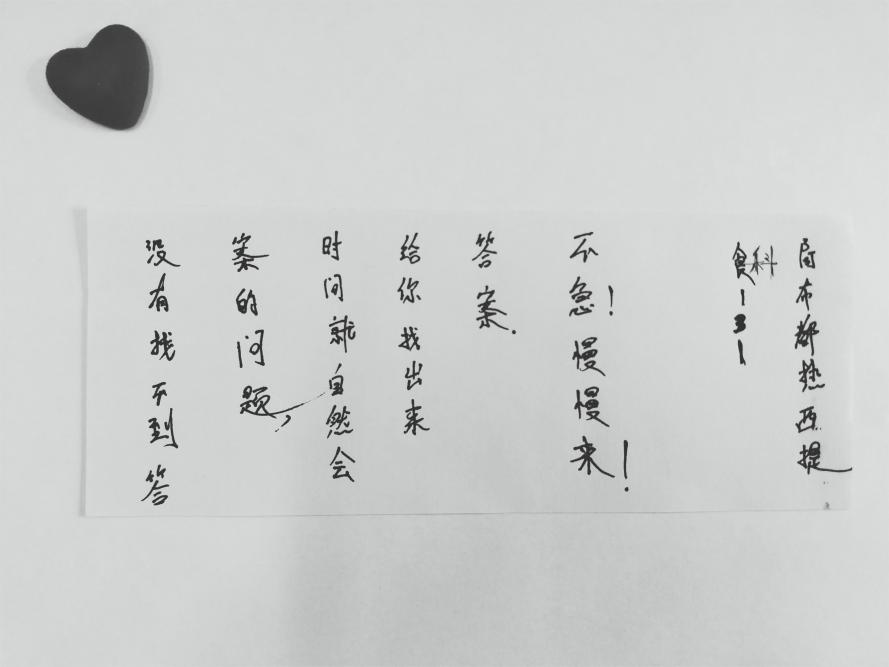 没有找不到答
案的问题，
时间就自然会
给你找出来
答案.
不急！慢慢来！
食科131
阿布都热西提